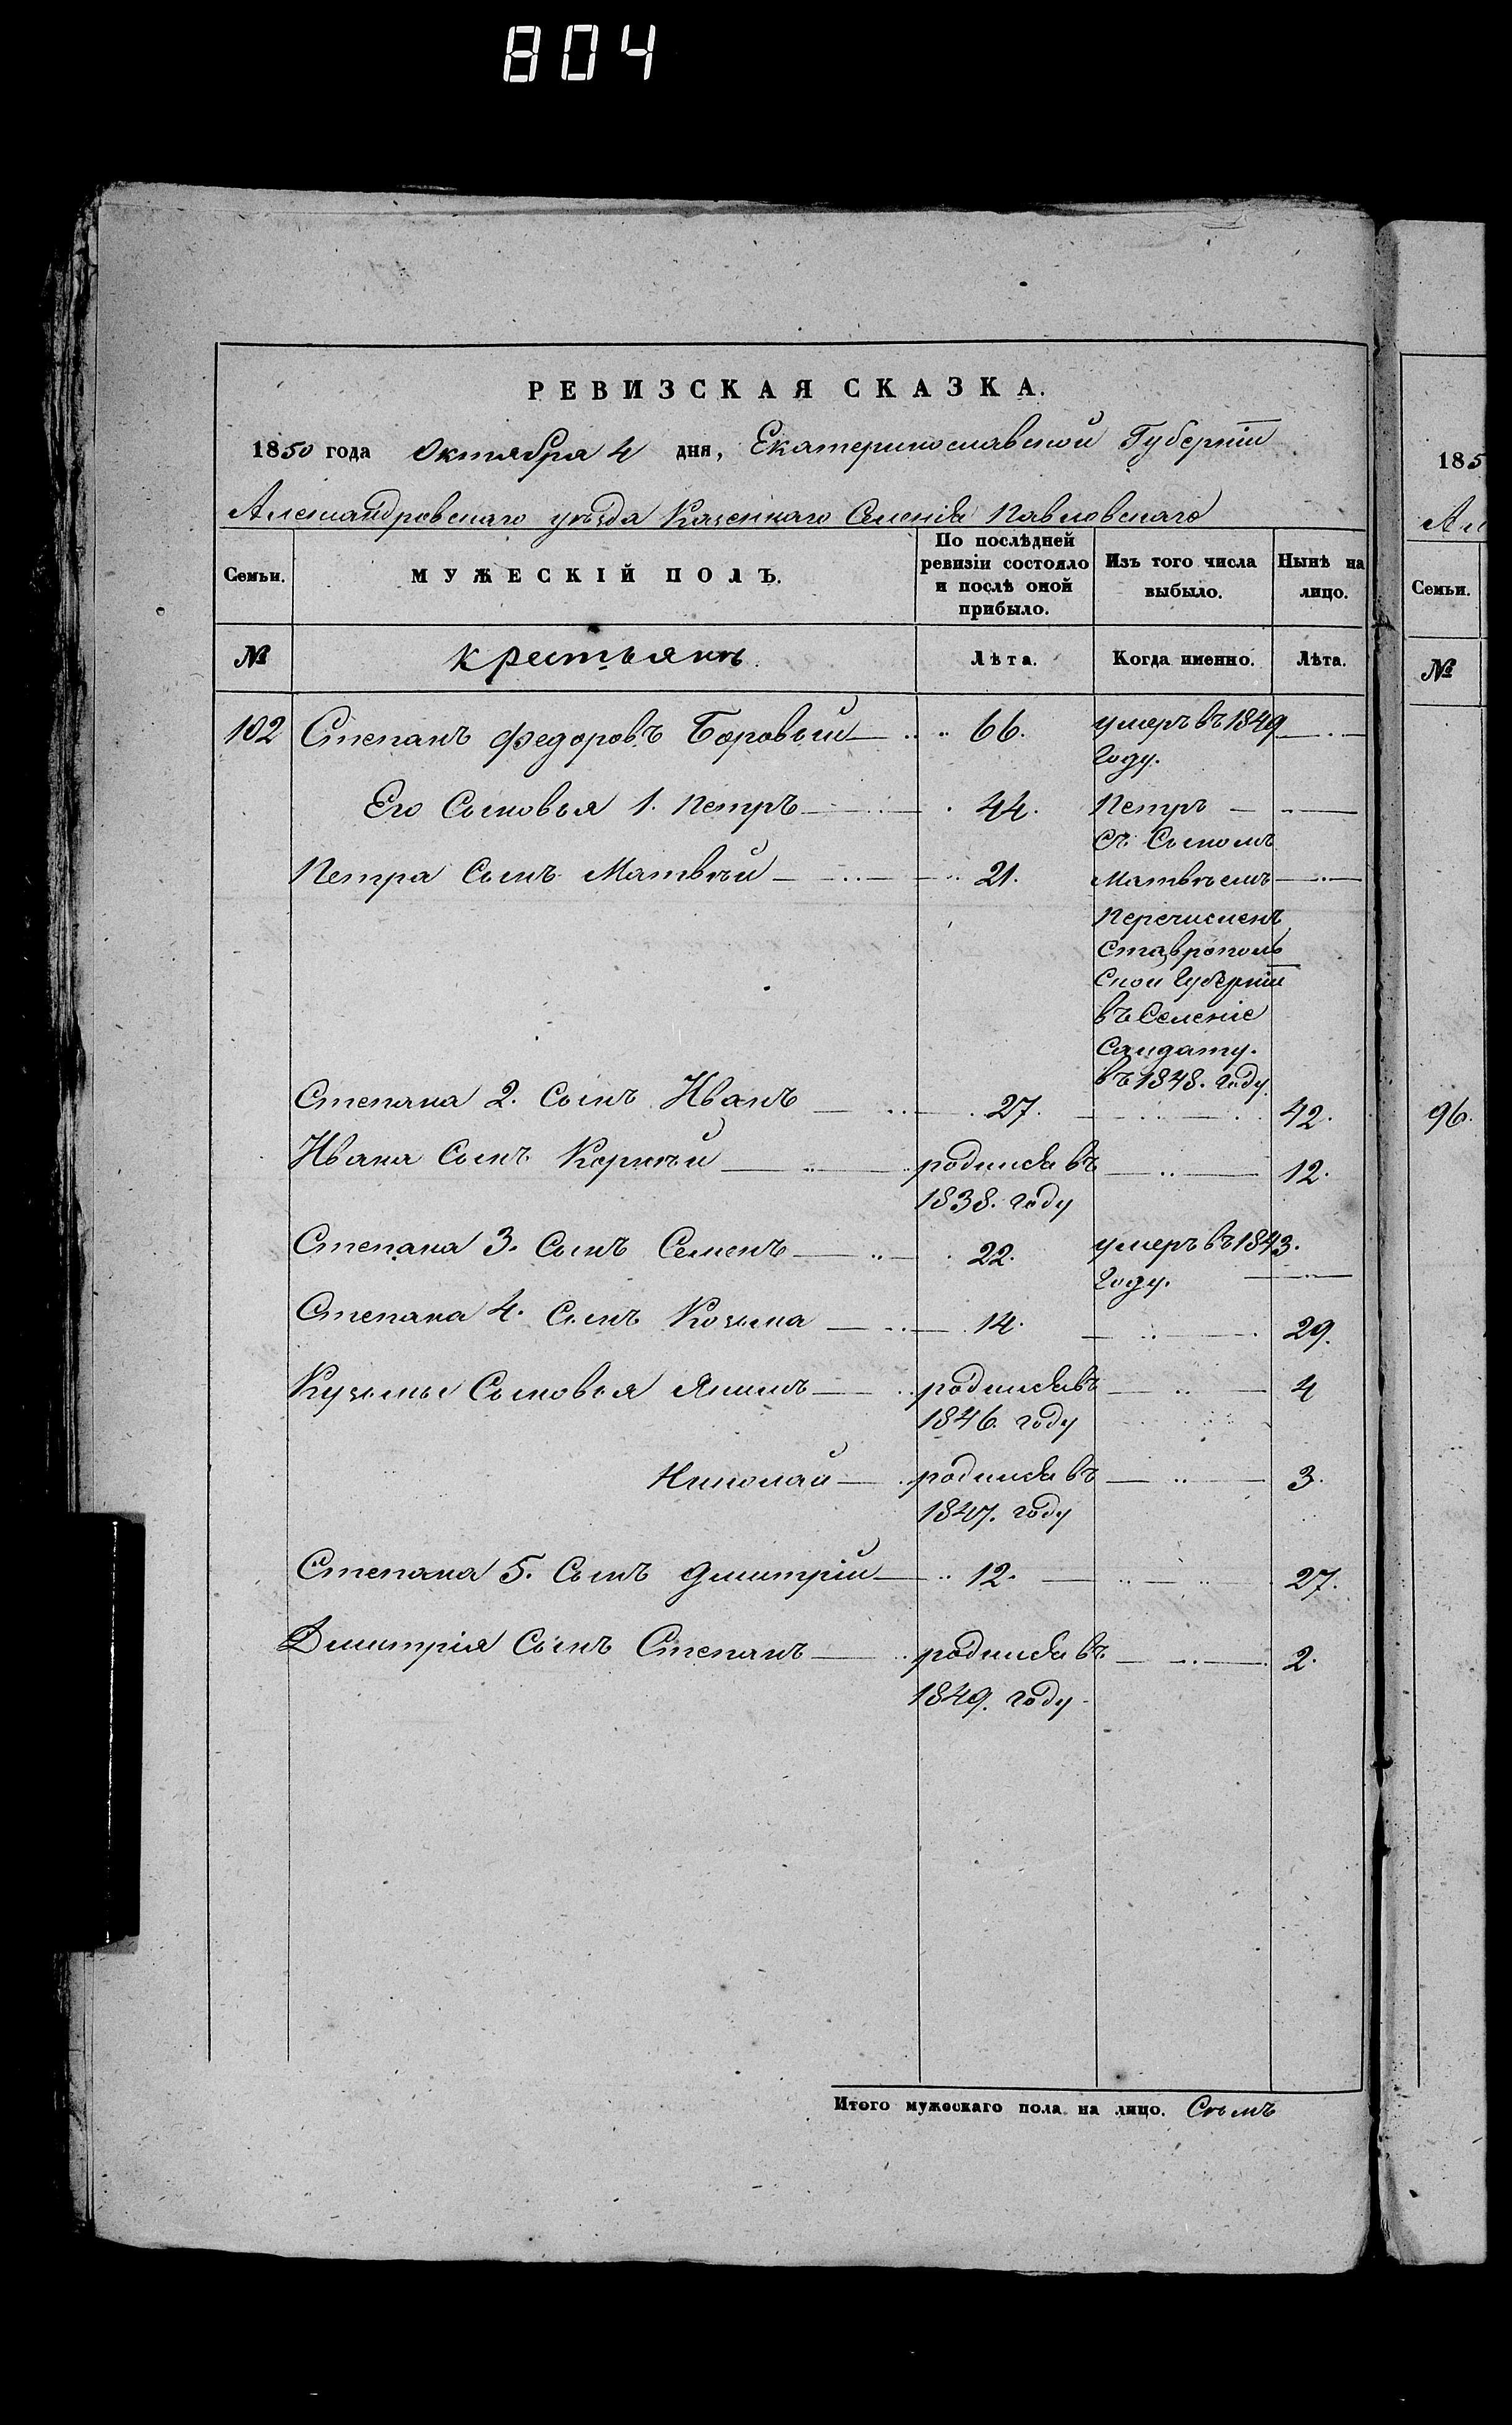 804
РЕВИЗСКАЯ СКАЗКА.
1850 года Октября 4 дня, Екатеринославской Губерніи
Александровскаго уѣзда Казеннаго Селенія Павловскаго
Семьи. МУЖЕСКІЙ ПОЛЪ. По послѣдней ревизіи состояло и послѣ оной прибыло. Изъ того числа выбыло. Нынѣ на лицо.
№ Крестьянъ. Лѣта. Когда именно. Лѣта.
102 Степанъ Федоровъ Боровый 66. умеръ въ 1849
году.
Его Сыновья 1. Петръ 44. Петръ
съ Сыномъ
Петра Сынъ Матвѣй 21. Матвѣемъ
перечисленъ
Ставрополь
ской Губерніи
въ Селеніе
Сандату.
въ 1848. году
Степана 2. Сынъ Иванъ 27. 42.
Ивана Сынъ Корнѣй родился въ 12.
1838. году
Степана 3. Сынъ Семенъ 22. умеръ въ 1843.
году.
Степана 4. Сынъ Козьма 14. 29.
Кузьмы Сыновья Якимъ родился въ 4
1846. году
Николай родился въ 3.
1847. году
Степана 5. Сынъ Дмитрій 12. 27.
Дмитрія Сынъ Степанъ родился въ 2.
1849. году
Итого мужескаго пола на лицо. Семь
185
Ал
Семьи.
№
96.